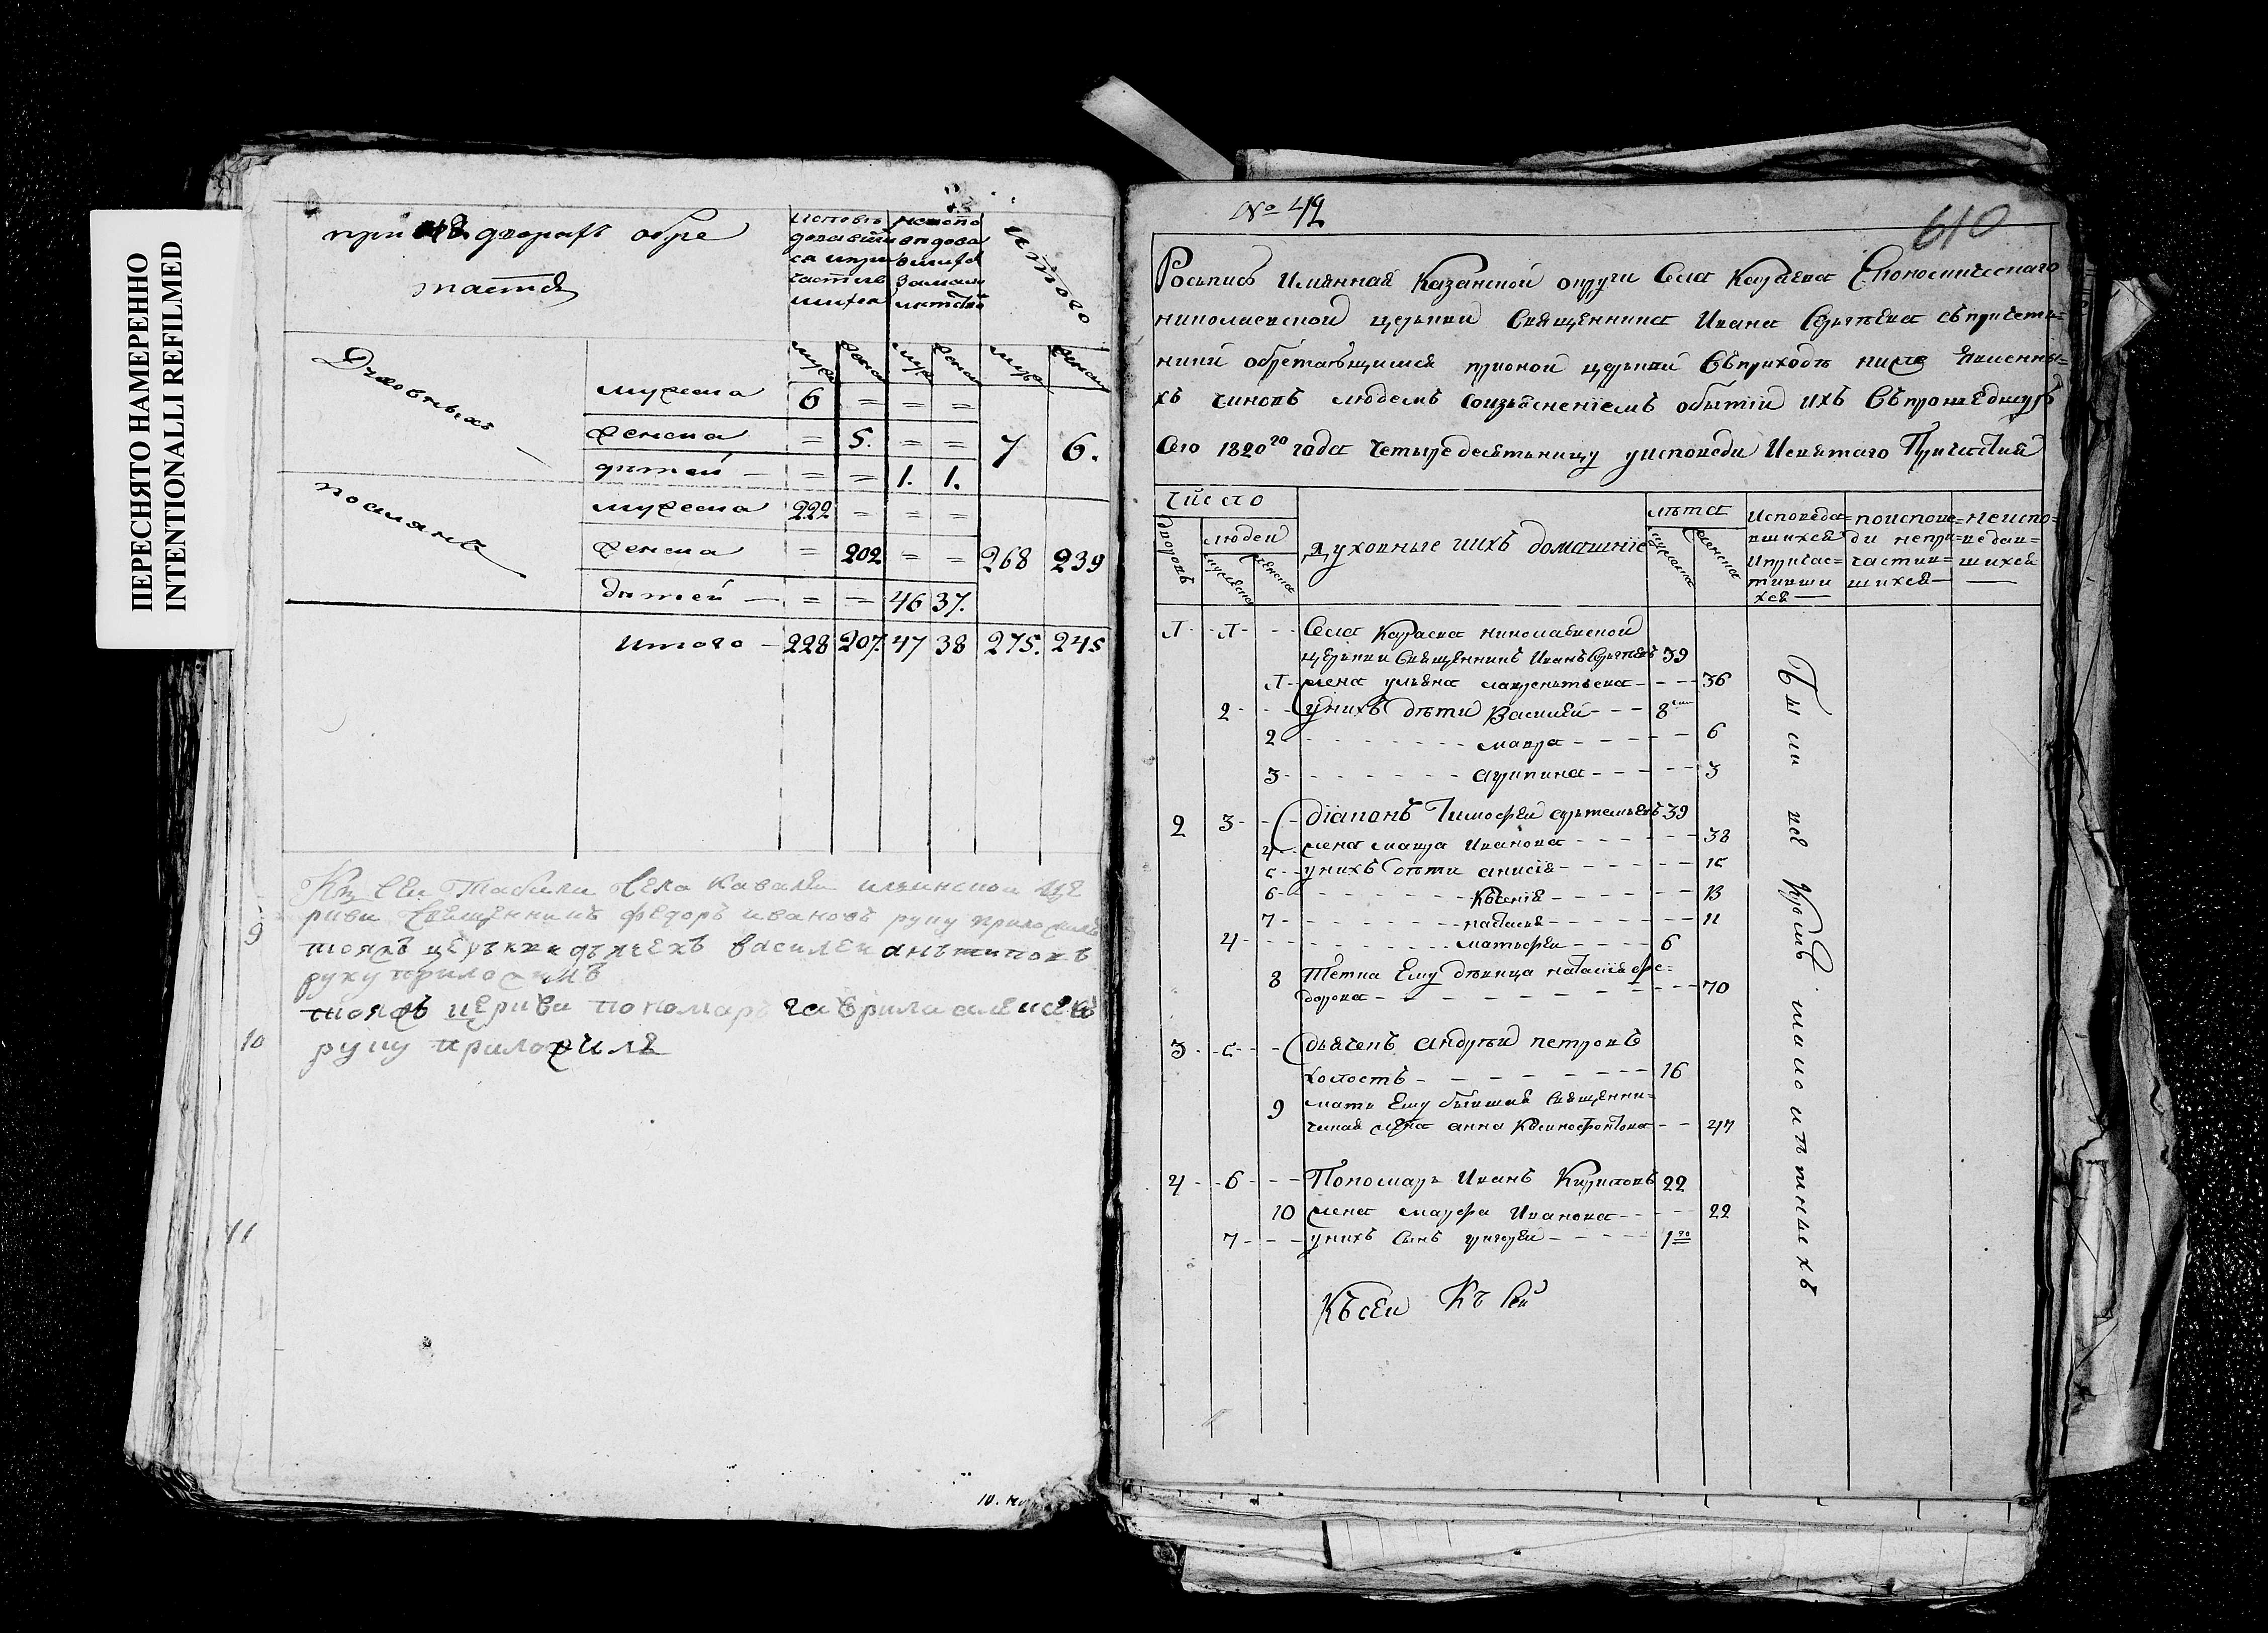 ПЕРЕСНЯТО НАМЕРЕННО
INTENTIONALLI REFILMED
при дворахъ обре
таетса
исповѣ
довавши
са и при
части
шихса
неиспо
ведова
вшихса
за мало
летст
итого
муже женс муже женс муже женс
Духовныхъ
мужеска 6 = = =
женска = 5. = = 7 6.
дѣтей — = = 1. 1.
посилянъ
мужеска 222 = = =
женска = 202 = = 268 239
дѣтей — = = 46 37.
итого — 228 207. 47 38 275. 245
Къ сеи табили села Кавалеи илинскои це
ркви Священникъ Федоръ Ивановъ руку приложилъ
9
тояжъ церькви дьячекъ василеи анътиповъ
руку приложилъ
тояжъ церкви пономарь гаврила алексеевъ
10
руку приложилъ
11
10.
№ 42
610
Роспись Имянная Казанской округи Села Караева Економическаго
николаевской церькви Священника Ивана Сергѣева съ причетни=
ники обретающимся при оной церькви Въ приходѣ ниже явленны=
хъ чиновъ людемъ соизъяснениемъ обытии ихъ Въ прошедшую
Сего 1820го года четыредесятьницу уисповеди Исвятаго Причастия
число
дворовъ
людеи
мужеска
женска
Духовные иихъ домашние
лѣта
мужеска
женска
Исповеда=
вшихся
Ипричас=
тивши
хся —
поиспове=
ди непри=
частив=
шихся —
неиспо=
ведав=
шихся
—
1 - - 1 - - - Села Караева николаевской
церькви Священникъ Иванъ Сергѣевъ 39
1 - жена ульяна лаврентьева - - - 36
2 - - - унихъ дѣти Василей - - - 8
2 - - - - - - - - мавра - - - - - 6
3 - - - - - - - - агрипина - - - - - 3
2 3 - - - Диаконъ Тимофей артемьевъ 39
4 - жена мавра Иванова - - - - - - 38
5 - унихъ дѣти анисия - - - - - - 15
6 - - - - - - - - Ксения - - - - - - 13
7 - - - - - - - - наталья - - - - - - 11
4 - - - - - - - - матьфеи - - - - 6
8 Тетка Ему дѣвица наталия фе=
дорова - - - - - - - - - - 70
3 - - 5 - - дьячекъ андрѣй петровъ
холостъ - - - - - - - - 16
9 мать Ему бывшая Священни=
ческая жена анна Ксенофонтова - - 47
4 - - 6 - - - Пономарь Иванъ Кириловъ 22
10 жена марфа Иванова - - - - 22
7 - - - - унихъ сынъ григорей - - - - - 1го
Къ сеи Къ сей
Были все кромѣ малолѣтныхъ